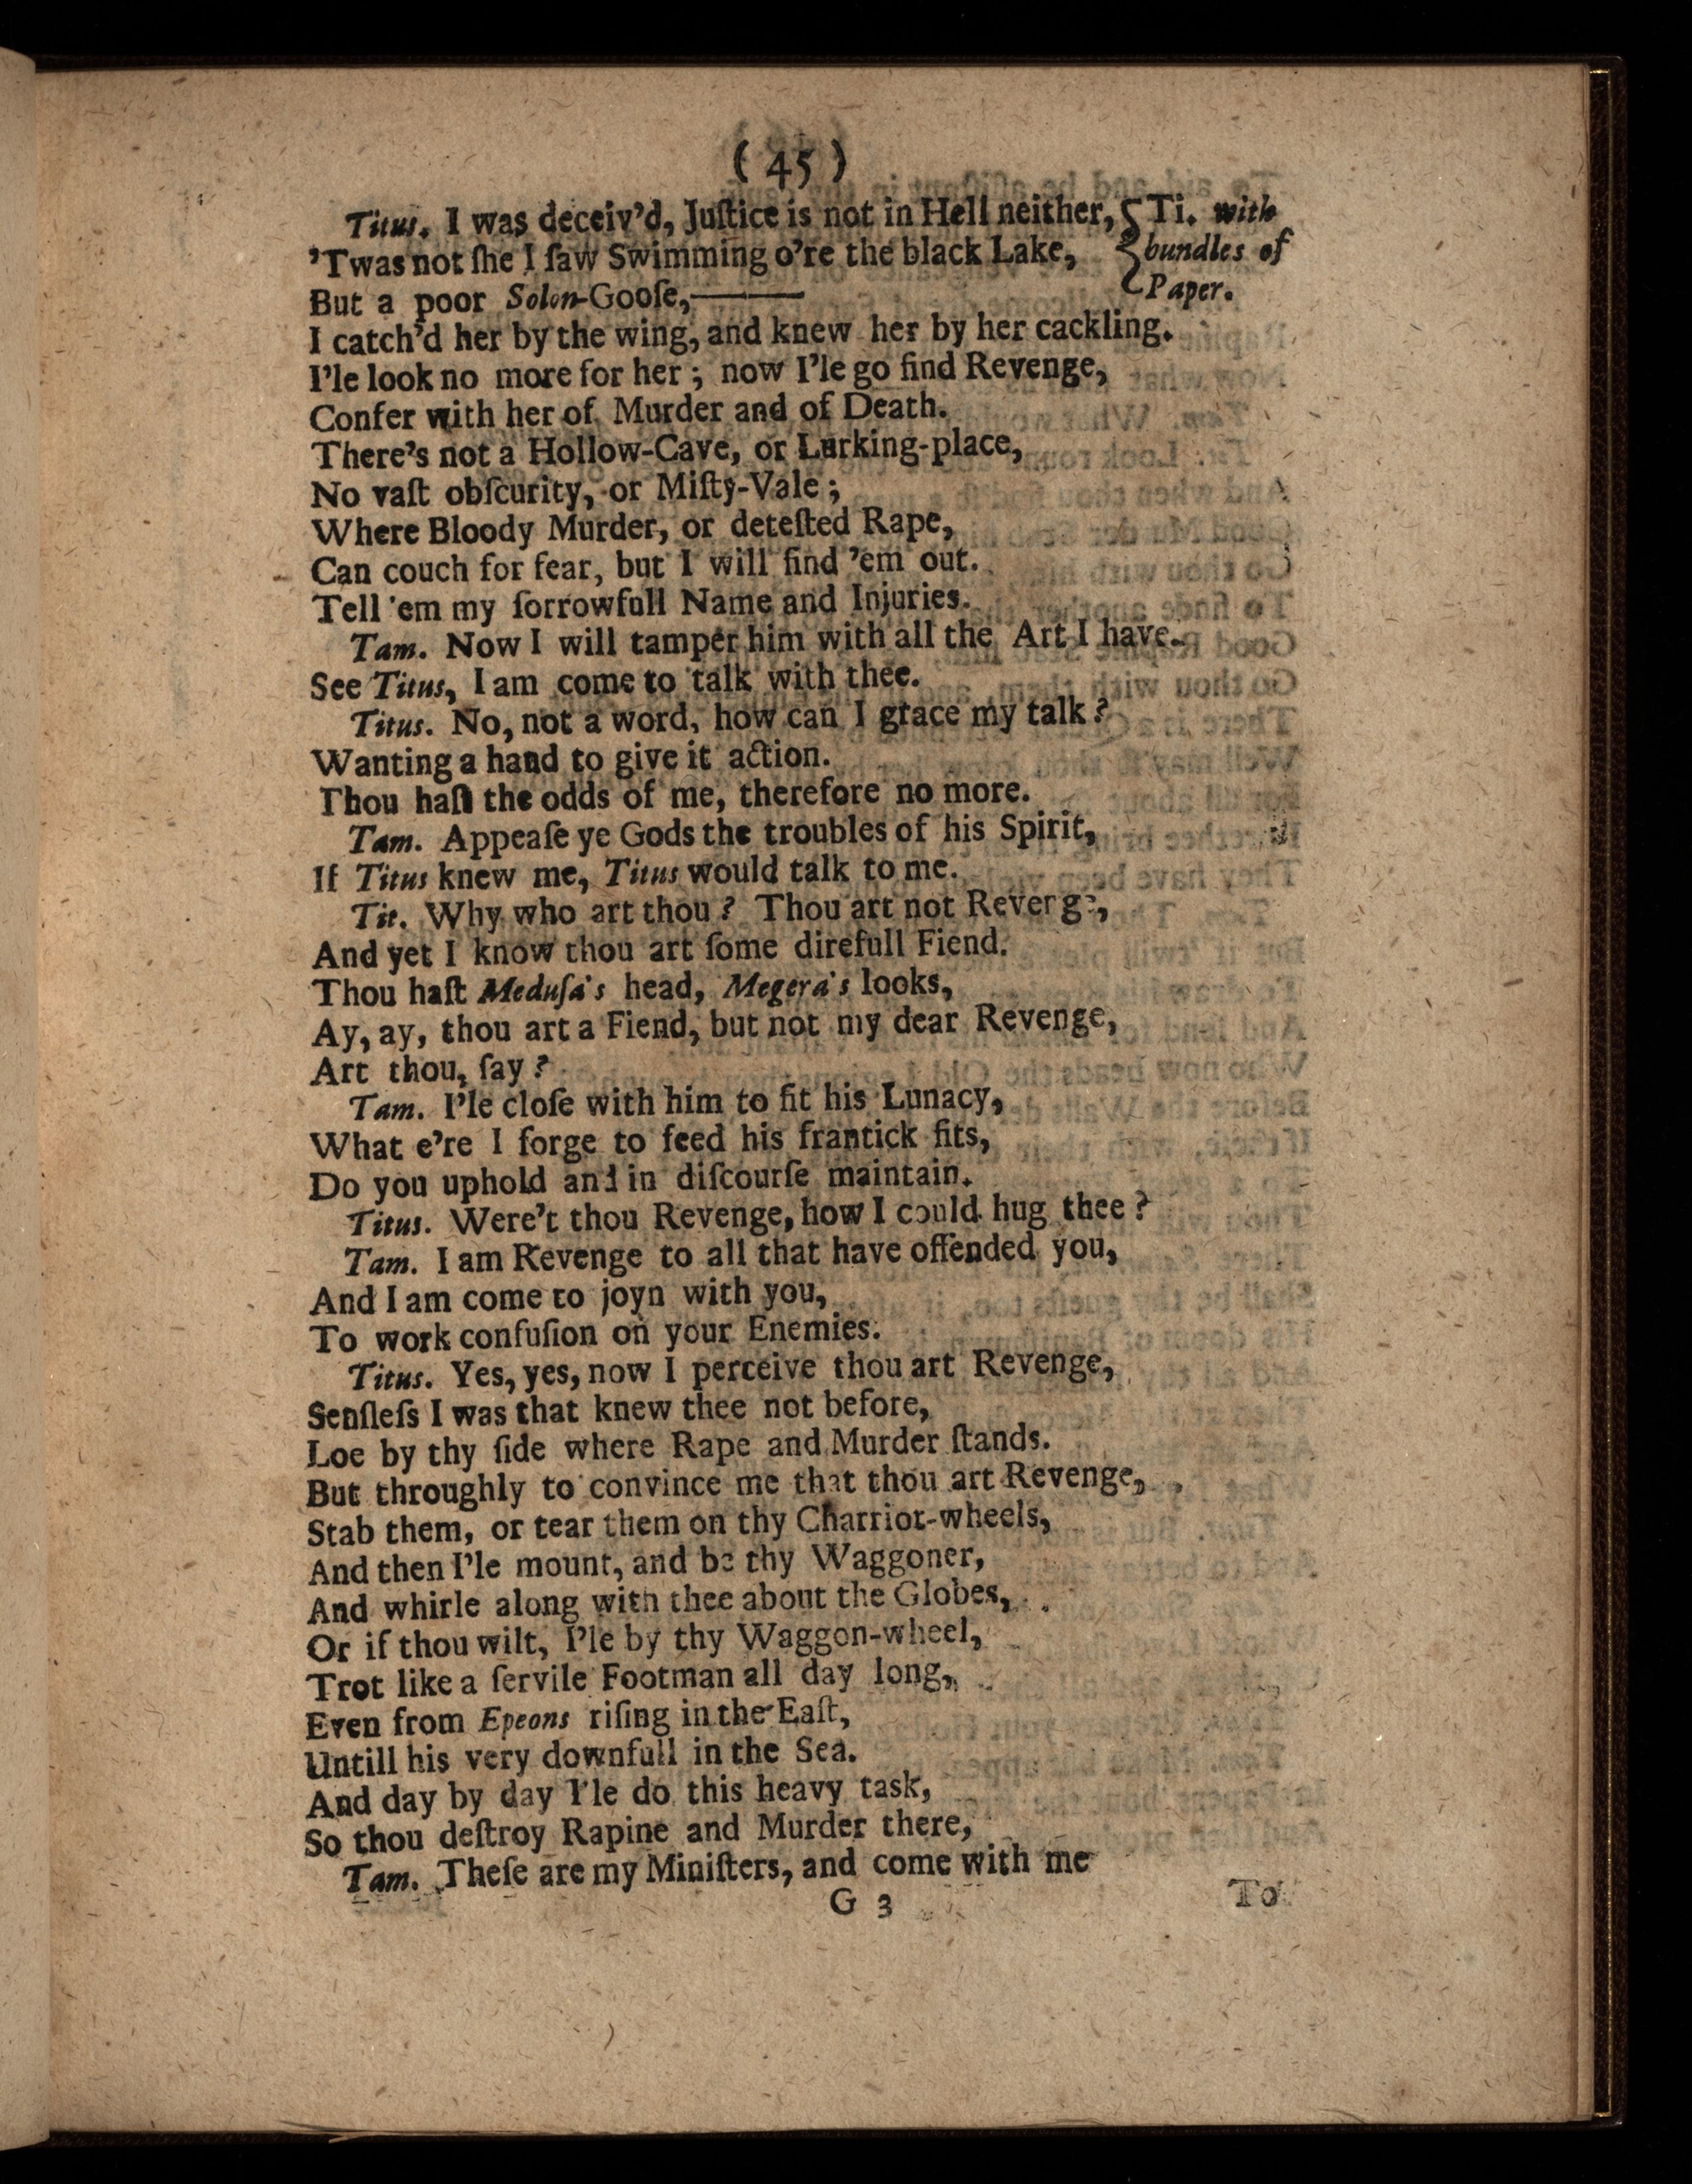 ( 45 )
Titus. I was deceiv'd, Juſtice is not in Hell neither, { Ti. with
'Twas not ſhe I ſaw Swimming o're the black Lake, bundles of
But a poor Solon-Gooſe,—— Paper.
I catch'd her by the wing, and knew her by her cackling.
I'le look no more for her ; now I'le go find Revenge,
Confer with her of Murder and of Death.
There's not a Hollow-Cave, or Lurking-place,
No vaſt obſcurity, or Miſty-Vale ;
Where Bloody Murder, or deteſted Rape,
Can couch for fear, but I will find 'em out.
Tell 'em my ſorrowfull Name and Injuries.
Tam. Now I will tamper him with all the Art I have.
See Titus, I am come to talk with thee.
Titus. No, not a word, how can I grace my talk ?
Wanting a hand to give it action.
Thou haſt the odds of me, therefore no more.
Tam. Appeaſe ye Gods the troubles of his Spirit,
If Titus knew me, Titus would talk to me.
Tit. Why who art thou ? Thou art not Reverge,
And yet I know thou art ſome direfull Fiend.
Thou haſt Meduſa's head, Megera's looks,
Ay, ay, thou art a Fiend, but not my dear Revenge,
Art thou, ſay ?
Tam. I'le cloſe with him to fit his Lunacy,
What e're I forge to feed his frantick fits,
Do you uphold and in diſcourſe maintain.
Titus. Were't thou Revenge, how I could hug thee ?
Tam. I am Revenge to all that have offended you,
And I am come to joyn with you,
To work confuſion on your Enemies.
Titus. Yes, yes, now I perceive thou art Revenge,
Senſleſs I was that knew thee not before,
Loe by thy ſide where Rape and Murder ſtands.
But throughly to convince me that thou art Revenge,
Stab them, or tear them on thy Charriot-wheels,
And then I'le mount, and be thy Waggoner,
And whirle along with thee about the Globes,
Or if thou wilt, I'le by thy Waggon-wheel,
Trot like a ſervile Footman all day long,
Even from Epeons riſing in the Eaſt,
Untill his very downfull in the Sea.
And day by day I'le do this heavy task,
So thou deſtroy Rapine and Murder there,
Tam. Theſe are my Miniſters, and come with me
G 3 To